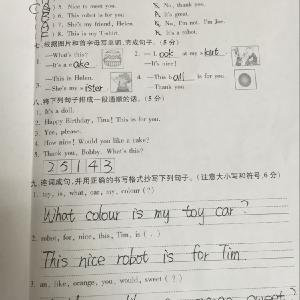 5. Nice to meet you. No, thank you.
6. This robot is for you. It's great.
7. She's my friend, Helen. No, I'm not. I'm Joe.
8. This is my T-shirt. It's a robot.
七、根据图片和首字母写单词,完成句子。(8分)
1. —What's this? 2. —Look at my skirt
—It's a cake —It's nice!
3. —This is Helen. 4. —This ball is for you.
—She's my sister —Thank you
八、将下列句子排成一段通顺的话。(5分)
1. It's a doll.
2. Happy Birthday, Tina! This is for you.
3. Yes, please.
4. How nice! Would you like a cake?
5. Thank you, Bobby. What's this?
2 5 1 4 3
九、连词成句,并用正确的书写格式抄写下列句子。(注意大小写和符号,6分)
1. toy, is, what, car, my, colour (?)
What colour is my toy car?
2. robot, for, nice, this, Tim, is (.)
This nice robot is for Tim.
3. an, like, orange, you, would, sweet (?)